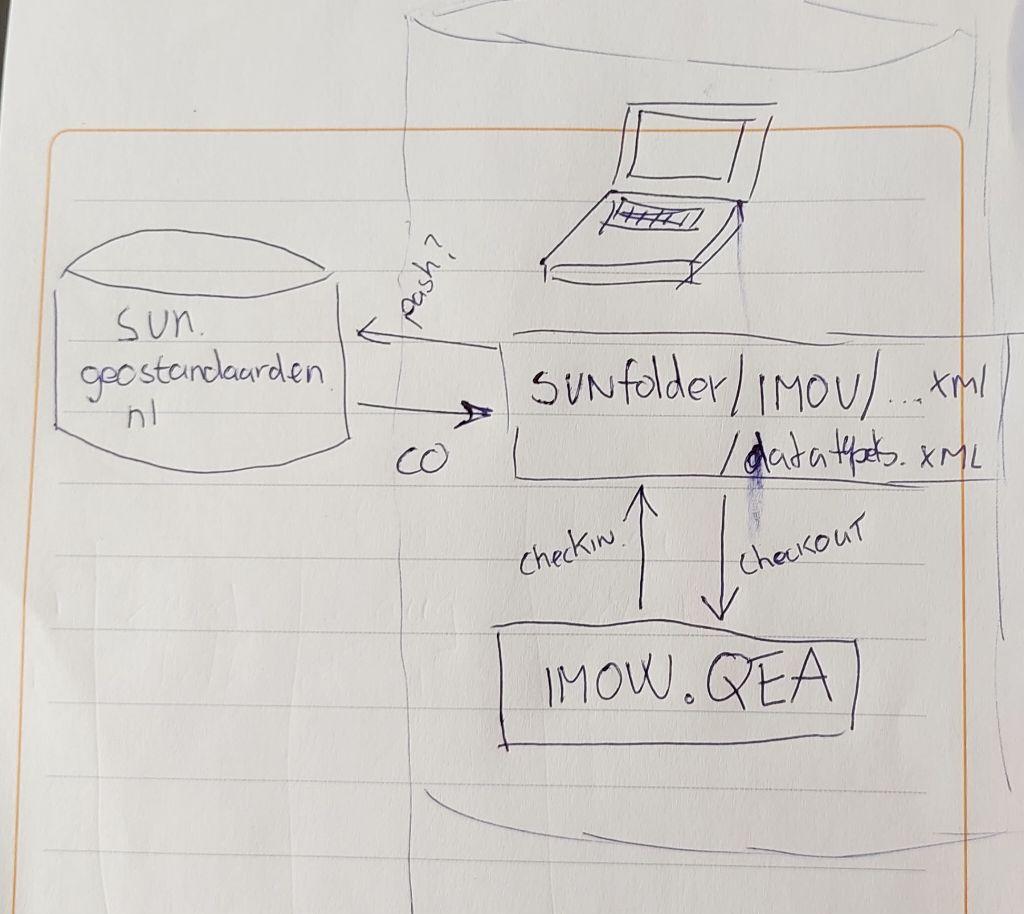 SVN.
geostandaarden.
nl
push?
CO
SVNfolder/IMOV/...xml
/datatypes.XML
checkin.
checkout
IMOW.QEA